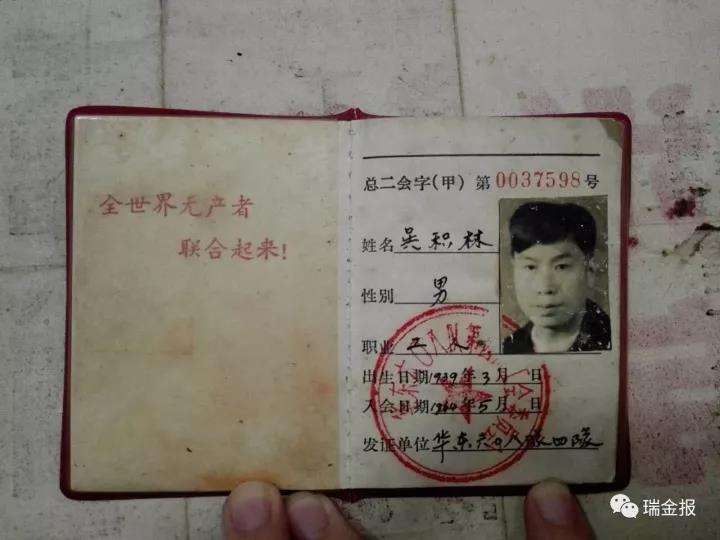 全世界无产者
联合起来!
总二会字(甲) 第0037598号
姓名 吴积林
性别 男
职业 工人
出生日期1939年3月 日
入会日期1964年5月 日
发证单位 华东六〇八队四队
瑞金报